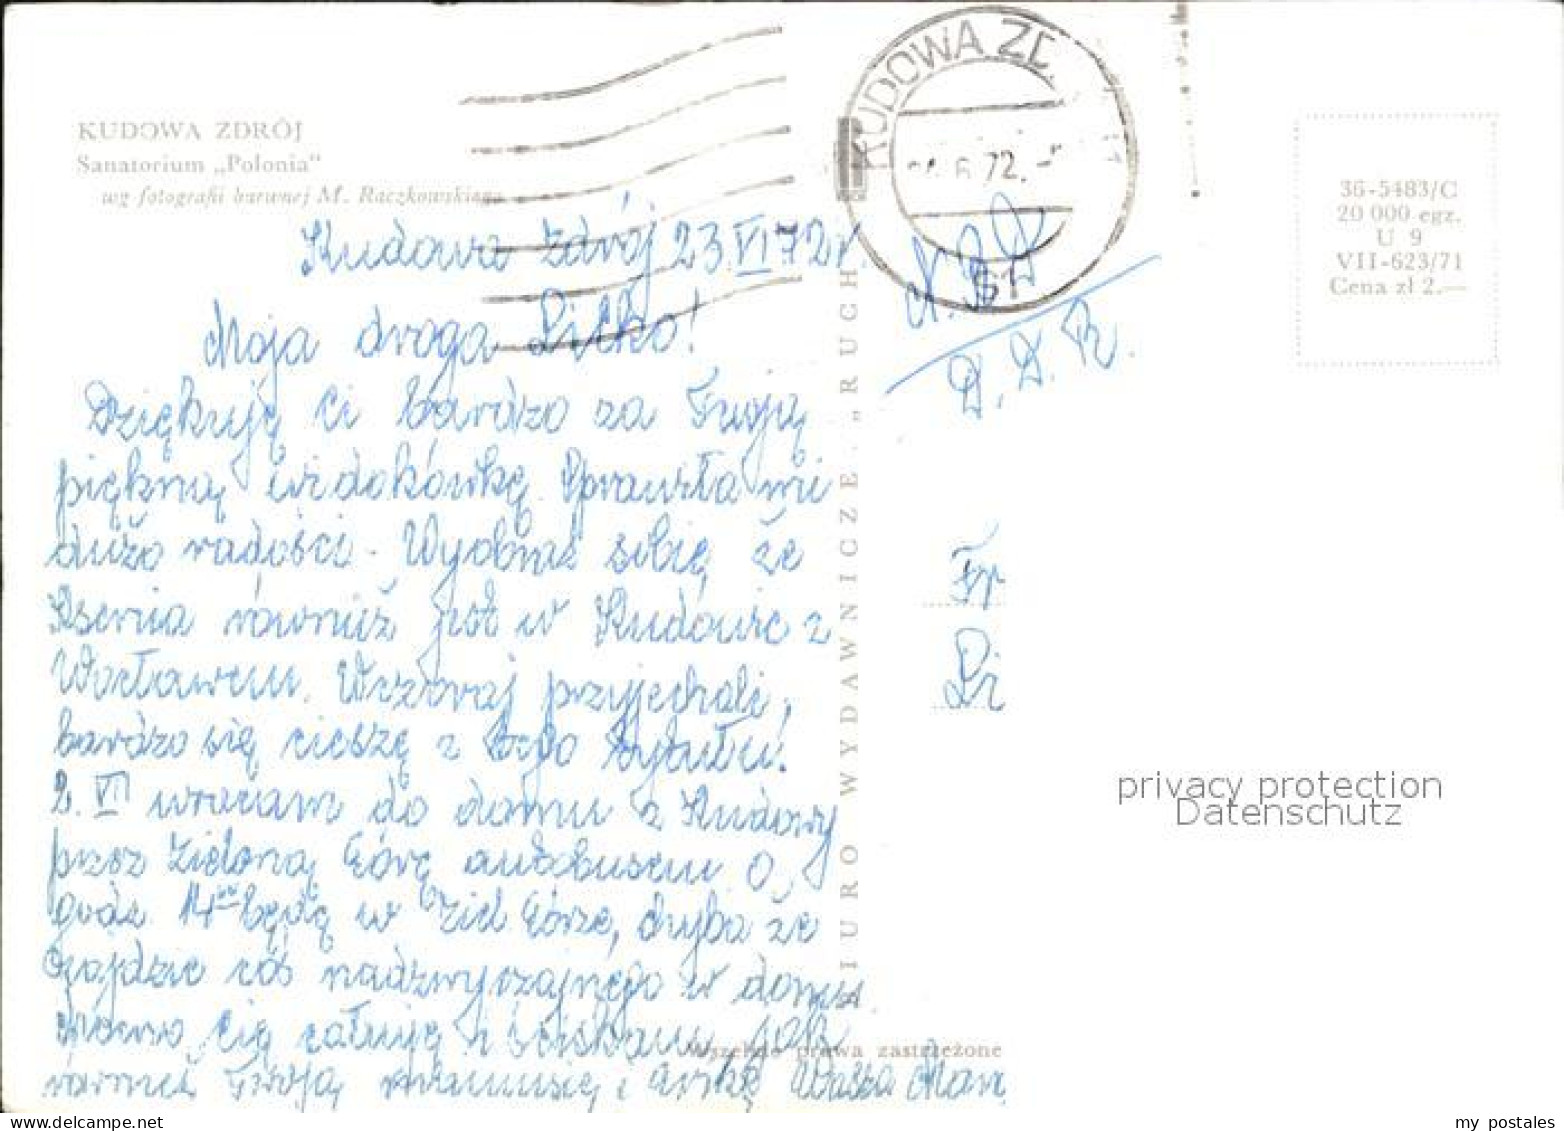 KUDOWA ZDRÓJ
Sanatorium „Polonia"
wg fotografii barwnej M. Raczkowskiego
KUDOWA ZD
6 72
S1
36-5483/C
20 000 egz.
U 9
VII-623/71
Cena zł 2.—
Kudowa Zdrój 23 VI 72 r.
Moja droga Lilko!
Dziękuję Ci bardzo za Twoją
piękną widokówkę. Sprawiła mi
dużo radości. Wyobraź sobie, że
Ksenia również jest w Kudowie z
Wacławem. Wczoraj przyjechali,
bardzo się cieszę z tego
2. VII wracam do domu z Kudowy
przez Zieloną Górę autobusem O
godz. 14⁰⁰ będę w Ziel Górze, chyba że
zajdzie coś nadzwyczajnego w domu.
Mocno Cię całuję i ściskam, jak
również Twoją i
D. D. R.
Fr
Li
BIURO WYDAWNICZE „RUCH
Wszelkie prawa zastrzeżone
privacy protection
Datenschutz
my postales